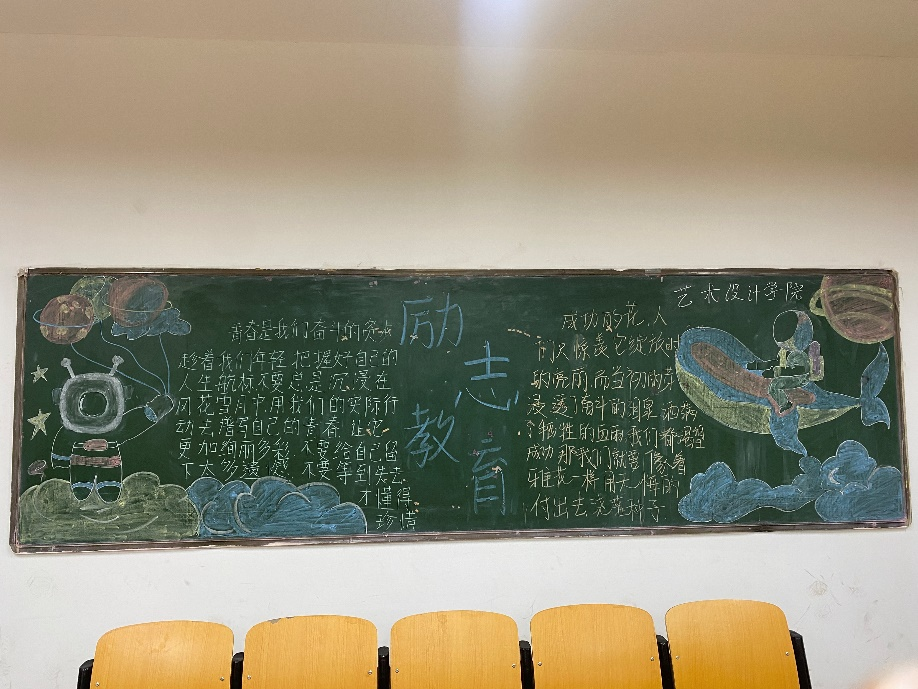 青春是我们奋斗的
趁着我们年轻把握好自己的
人生航标不要总是沉浸在
风花雪月中用我们的实际行
动去谱写自己的青春让它
更加绚丽多彩不要给自己留
下太多遗憾不要等到失去
才懂得
珍惜
励志教育
艺术设计学院
成功的花人
们只惊羡它绽放时
的亮丽而当初的芽
浸透了奋斗的泪泉洒满
了牺牲的血雨我们都渴望
成功那我们就要像着
雅花一样用大
付出去浇灌种子